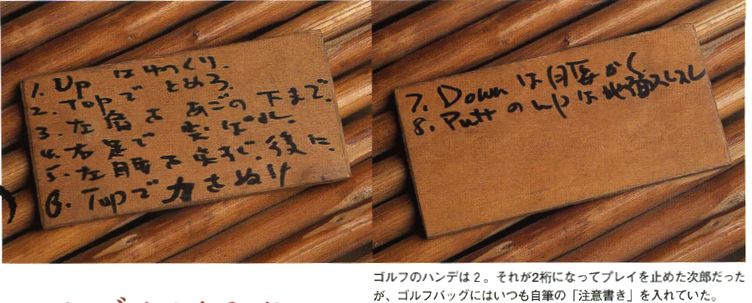 1. Up はゆっくり.
2. Topで とめろ
3. 左肩を あごの下まで.
4. 右足で
5. 左腰を 後に.
6. Topで 力をぬけ
7. Down は
8. Putt の up は地面スレスレ
ゴルフのハンデは2。それが2桁になってプレイを止めた次郎だった
が、ゴルフバッグにはいつも自筆の「注意書き」を入れていた。